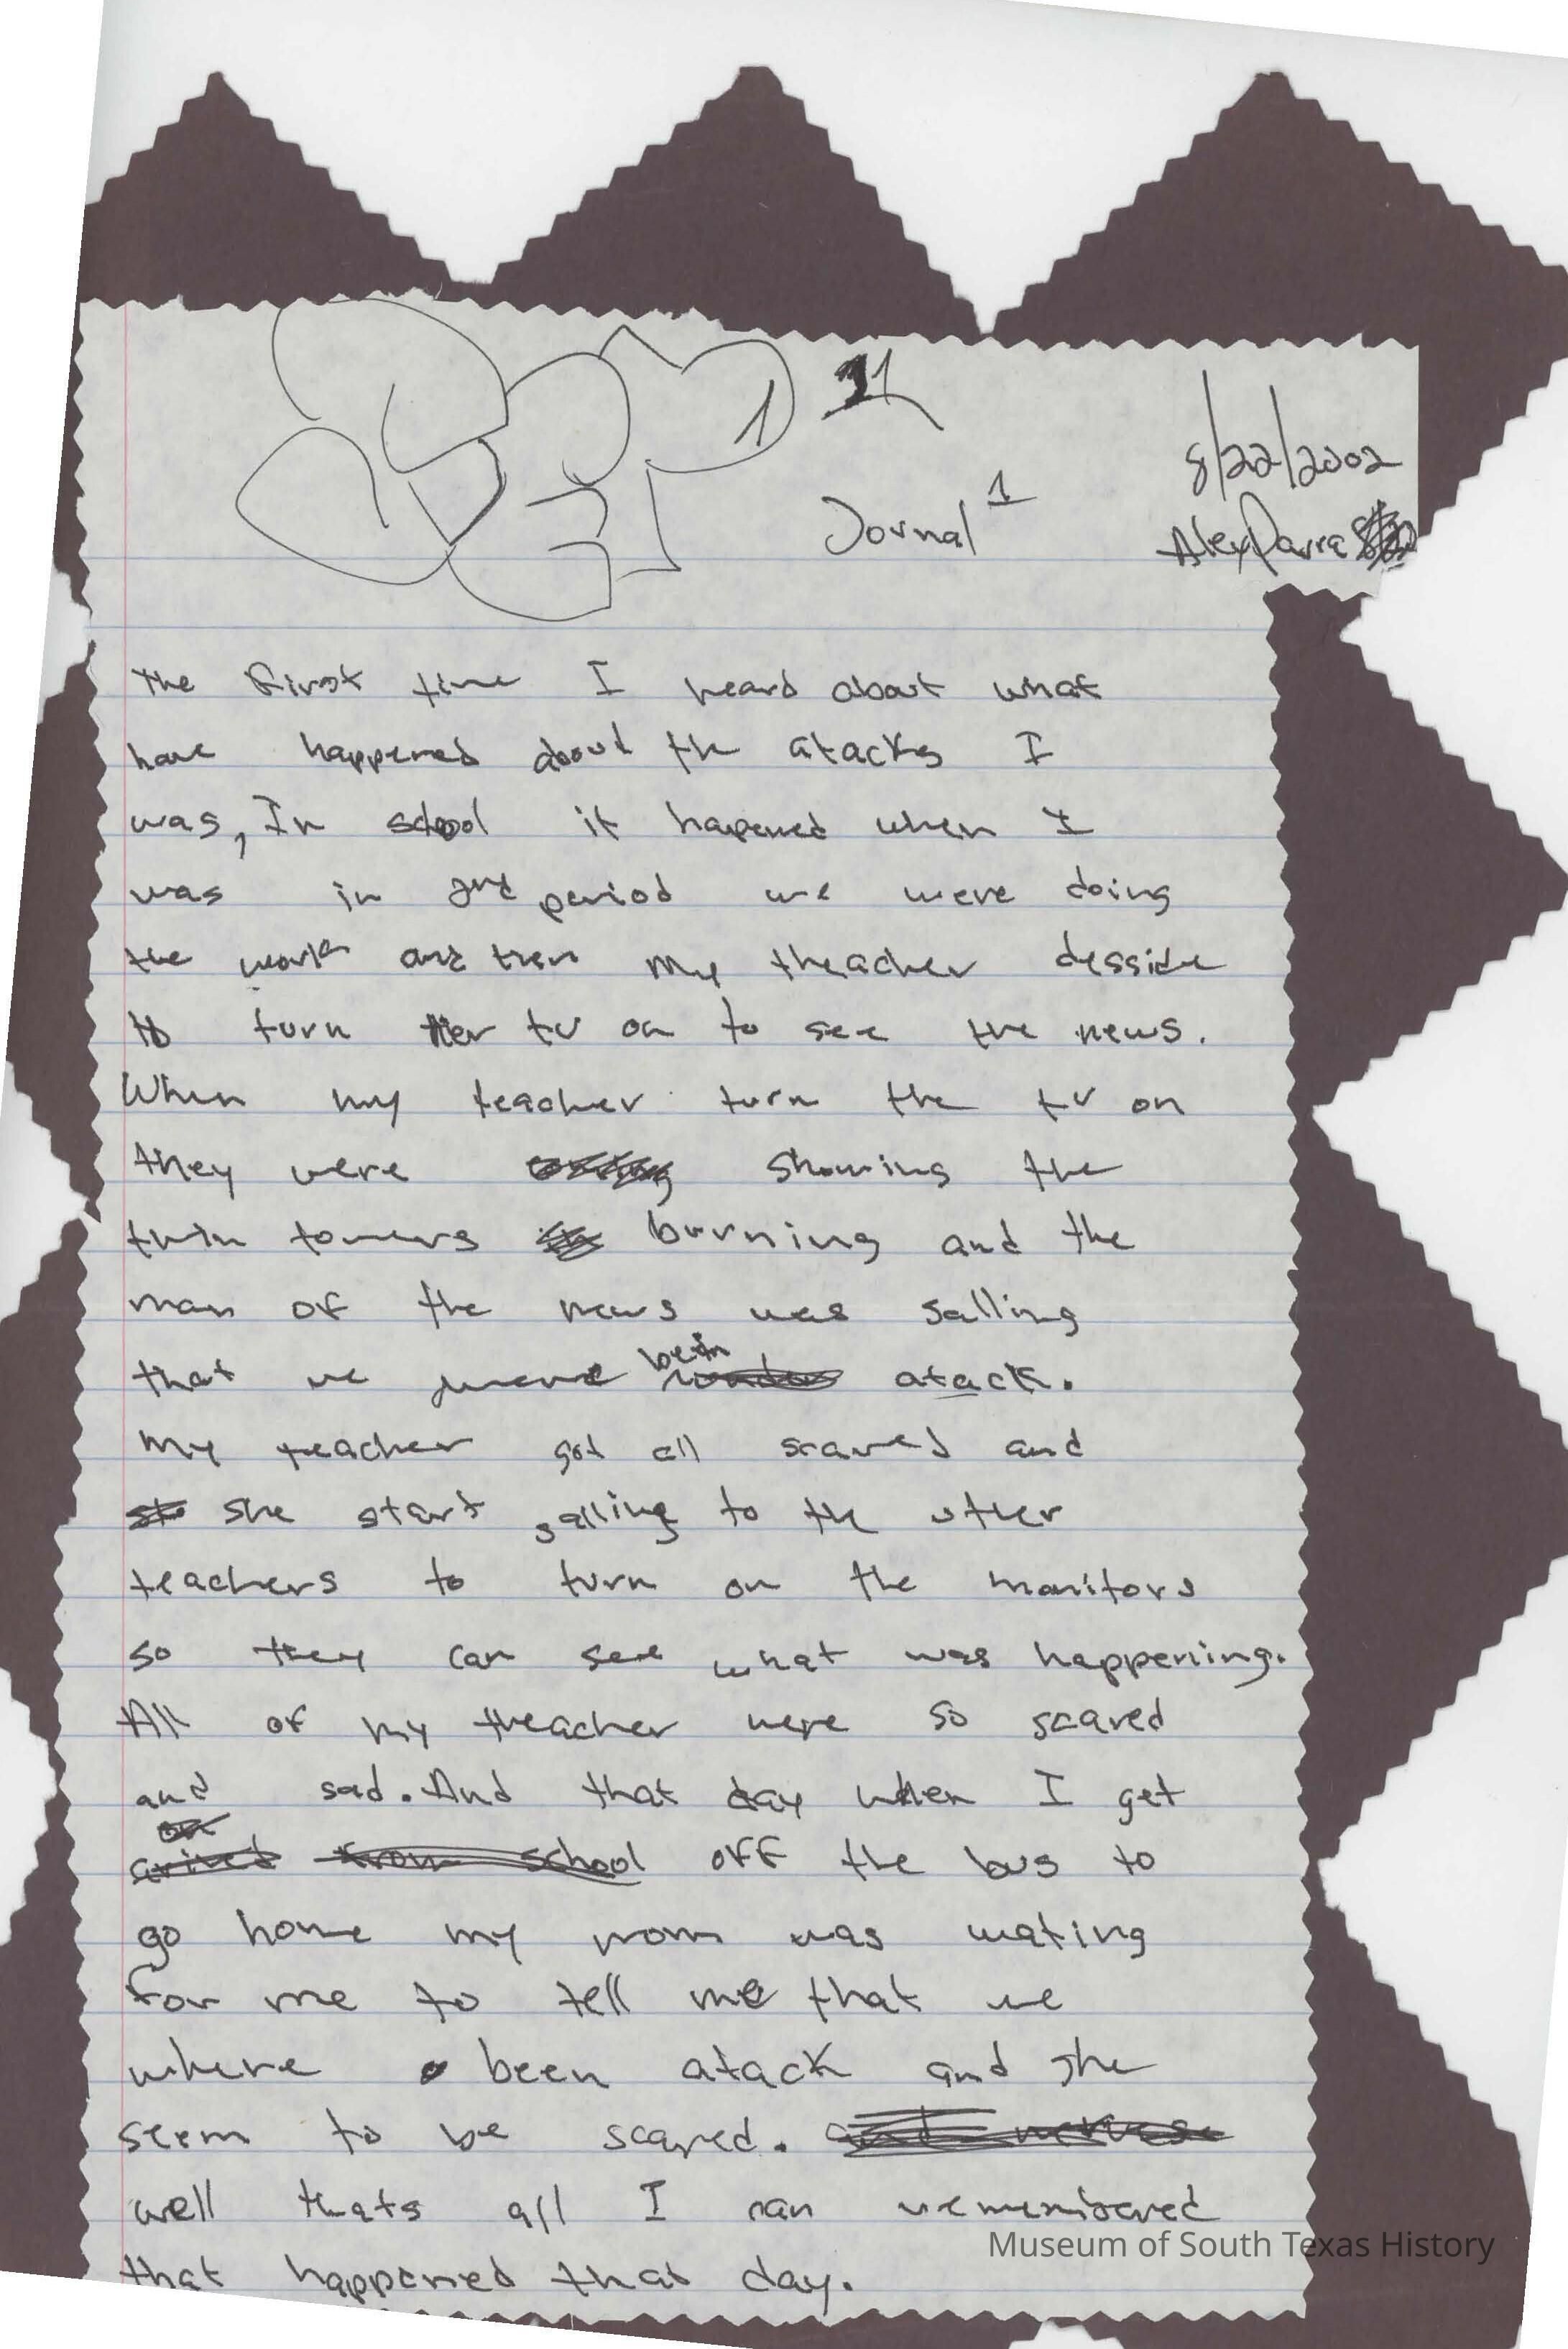 11
Jornal 1
8/22/2002
Alex Parra
The first time I heard about what
have happened about the atacks I
was, In school it hapened when I
was in 2nd period we were doing
the work and then my theacher desside
to turn her tv on to see the news.
When my teacher turn the tv on
they were showing the
twin towers burning and the
man of the news was salling
that we were bein atack.
My teacher got all scared and
she start salling to the other
teachers to turn on the monitors
so they can see what was happeniing.
All of my theacher were so scared
and sad. And that day when I get
arived from school off the bus to
go home my mom was wating
for me to tell me that we
where been atack and she
seem to be scared.
well thats all I can rememibered
that happened that day.
Museum of South Texas History